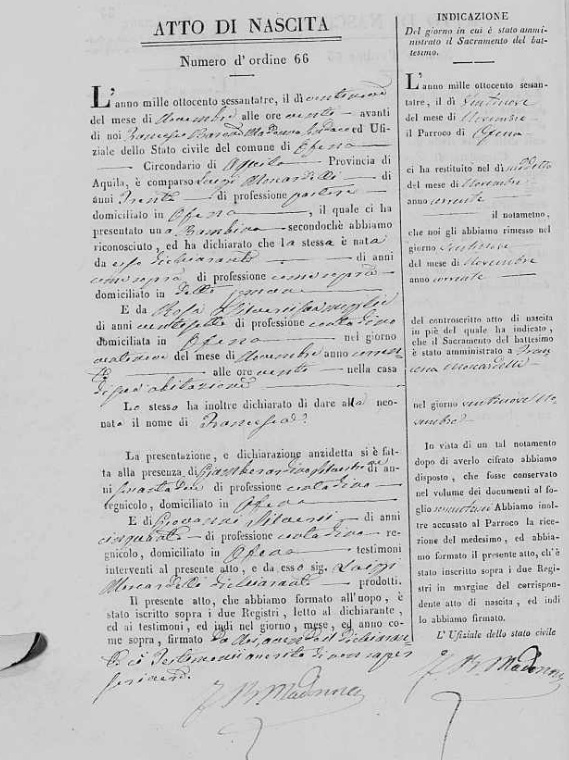 ATTO DI NASCITA
Numero d'ordine 66
L'anno mille ottocento sessantatre, il dì ventinove
del mese di Novembre alle ore venti avanti
di noi Francesco Madonna Sindaco ed Ufi-
ziale dello Stato civile del comune di Ofena
Circondario di Aquila Provincia di
Aquila, è comparso Luigi Moscardelli di
anni Trenta di professione pastore
domiciliato in Ofena , il quale ci ha
presentato una Bambina secondochè abbiamo
riconosciuto, ed ha dichiarato che la stessa è nata
da esso dichiarante di anni
come sopra di professione come sopra
domiciliato in detto Comune
E da Rosa Silveri sua moglie
di anni ventisette di professione contadina
domiciliata in Ofena nel giorno
del mese di Novembre anno corren
te alle ore venti nella casa
di sua abitazione
Lo stesso ha inoltre dichiarato di dare alla neo-
nata il nome di Francesca
La presentazione, e dichiarazione anzidetta si è fat-
ta alla presenza di Giamberardino Silvestri di an-
ni quarta di professione contadino
regnicolo, domiciliato in Ofena
E di Giovanni Silveri di anni
cinquanta di professione contadino re-
gnicolo, domiciliato in Ofena testimoni
intervenuti al presente atto, e da esso sig. Luigi
Moscardelli dichiarante prodotti.
Il presente atto, che abbiamo formato all'uopo, è
stato iscritto sopra i due Registri, letto al dichiarante,
ed ai testimoni, ed indi nel giorno, mese, ed anno co-
me sopra, firmato da noi, avendo il dichiaran
te e i Testimonii asserito di non saper
scrivere.
F. Madonna
INDICAZIONE
Del giorno in cui è stato ammi-
nistrato il Sacramento del bat-
tesimo.
L'anno mille ottocento sessan-
tatre, il dì Ventinove
del mese di Novembre
il Parroco di Ofena
ci ha restituito nel dì suddetto
del mese di Novembre
anno corrente
il notamento,
che noi gli abbiamo rimesso nel
giorno Ventinove
del mese di Novembre
anno corrente
del controscritto atto di nascita
in piè del quale ha indicato,
che il Sacramento del battesimo
è stato amministrato a Fran
cesca Moscardelli
nel giorno ventinove No
vembre
In vista di un tal notamento
dopo di averlo cifrato abbiamo
disposto, che fosse conservato
nel volume dei documenti al fo-
glio Abbiamo inol-
tre accusato al Parroco la rice-
zione del medesimo, ed abbia-
mo formato il presente atto, ch'è
stato inscritto sopra i due Regi-
stri in margine del corrispon-
dente atto di nascita, ed indi
lo abbiamo firmato.
L'Ufiziale dello stato civile
F. Madonna